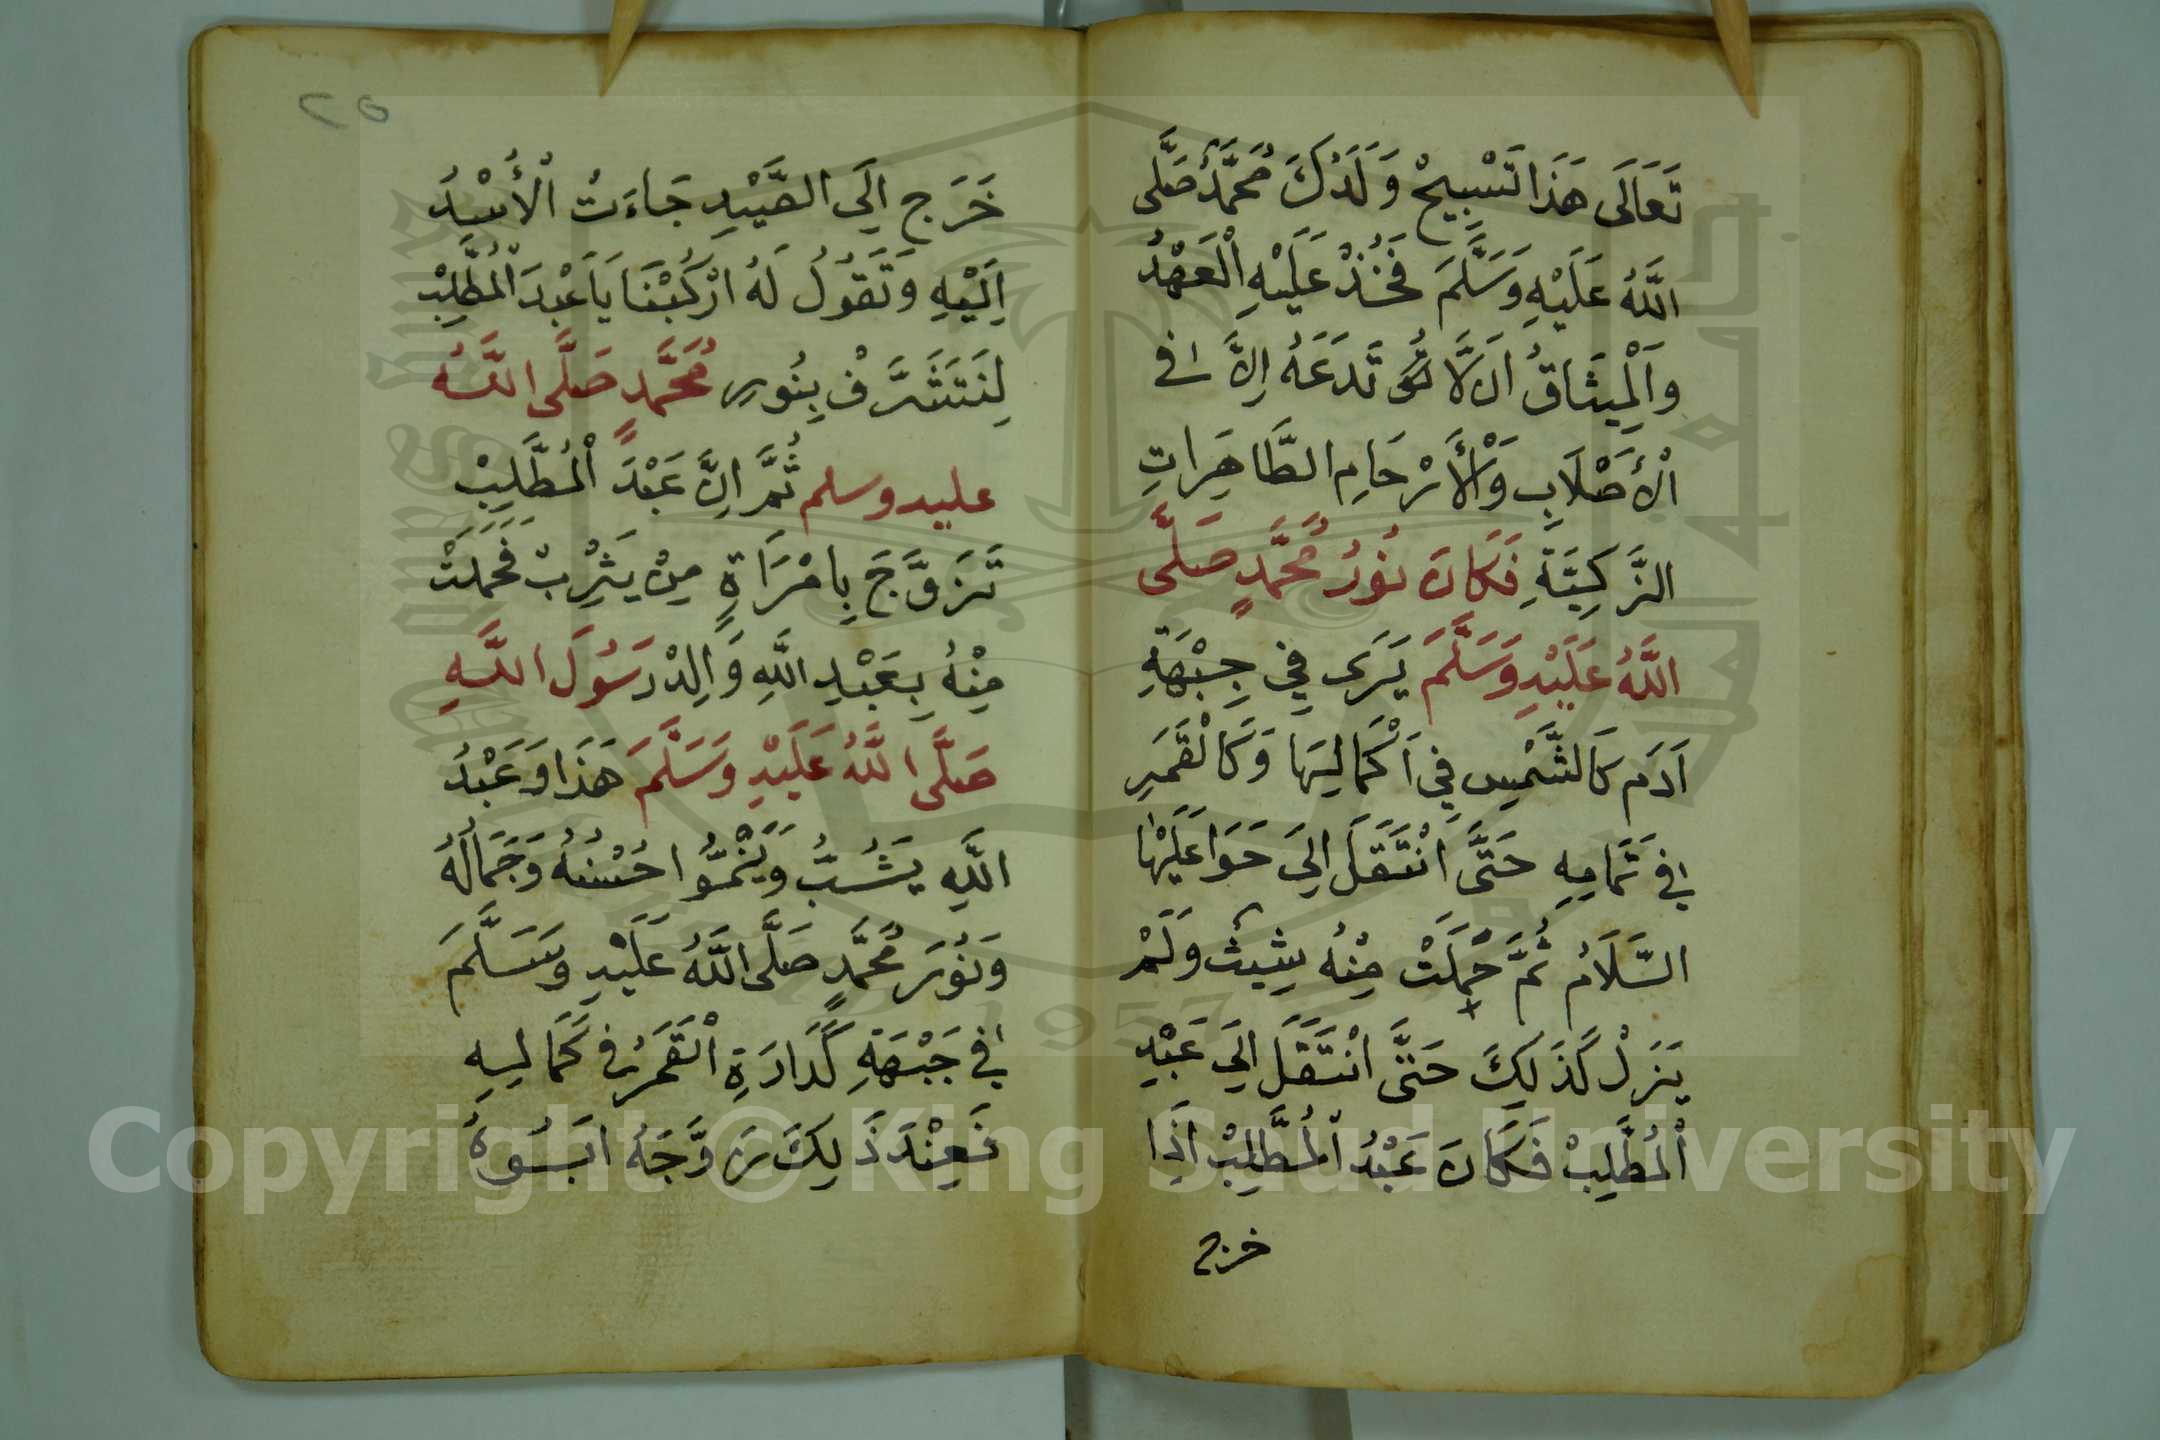 تَعَالَى هَذَا تَسْبِيحْ وَلَدُكَ مُحَمَّدْ صَلَّى
اللَّهُ عَلَيْهِ وَسَلَّمَ فَخُذْ عَلَيْهِ الْعَهْدُ
وَالْمِيثَاقُ اَنْ لَا تَدَعَهُ اِلَّا فِي
الْأَصْلَابِ وَالْأَرْحَامِ الطَّاهِرَاتِ
الزَّكِيَّةِ فَكَانَ نُورُ مُحَمَّدٍ صَلَّى
اللَّهُ عَلَيْهِ وَسَلَّمَ يَرَى فِي جِبْهَةِ
اَدَم كَالشَّمْسِ فِي اَكْمَالِهَا وَكَالْقَمَرِ
فِي تَمَامِهِ حَتَّى انْتَقَلَ اِلَى حَوَا عَلَيْهَا
السَّلَامُ ثُمَّ حَمِلَتْ مِنْهُ بِشِيثْ وَلَمْ
يَزَلْ كَذَلِكَ حَتَّى انْتَقَلَ اِلَى عَبْدِ
الْمُطَّلِبْ فَكَانَ عَبْدُ الْمُطَّلِبْ اِذَا
خرج
٢٥
خَرَج اِلَى الصَّيْدِ جَاءَتْ الْأُسْدُ
اِلَيْهِ وَتَقُولُ لَهُ ارْكَبْنَا يَا عَبْدَ الْمُطَّلِبْ
لِنَتَشَرَّفْ بِنُورِ مُحَمَّدٍ صَلَّى اللَّهُ
عليه وسلم ثُمَّ اِنَّ عَبْدَ الْمُطَّلِبْ
تَزَوَّجَ بِامْرَاَةٍ مِنْ يَثْرِبْ فَحَمَلَتْ
مِنْهُ بِعَبْدِ اللَّهِ وَالِدْ رَسُولَ اللَّهِ
صَلَّى اللَّهُ عَلَيْهِ وَسَلَّمَ هَذَا وَعَبْدُ
اللَّهِ يَشُبُّ وَيَنْمُوا حُسْنُهُ وَجَمَالُهُ
وَنُورَ مُحَمَّدٍ صَلَّى اللَّهُ عَلَيْهِ وَسَلَّمَ
فِي جَبْهَةِ كَدَارَةِ الْقَمَرُ فِي كَمَالِهِ
فَعِنْدَ ذَلِكَ زَوَّجَهُ اَبُوهُ
Copyright © King Saud University
1957